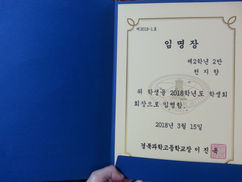 제2018-1호
임명장
제2학년 2반
전지향
위 학생을 2018학년도 학생회
회장으로 임명함.
2018년 3월 15일
경북과학고등학교장 이진욱